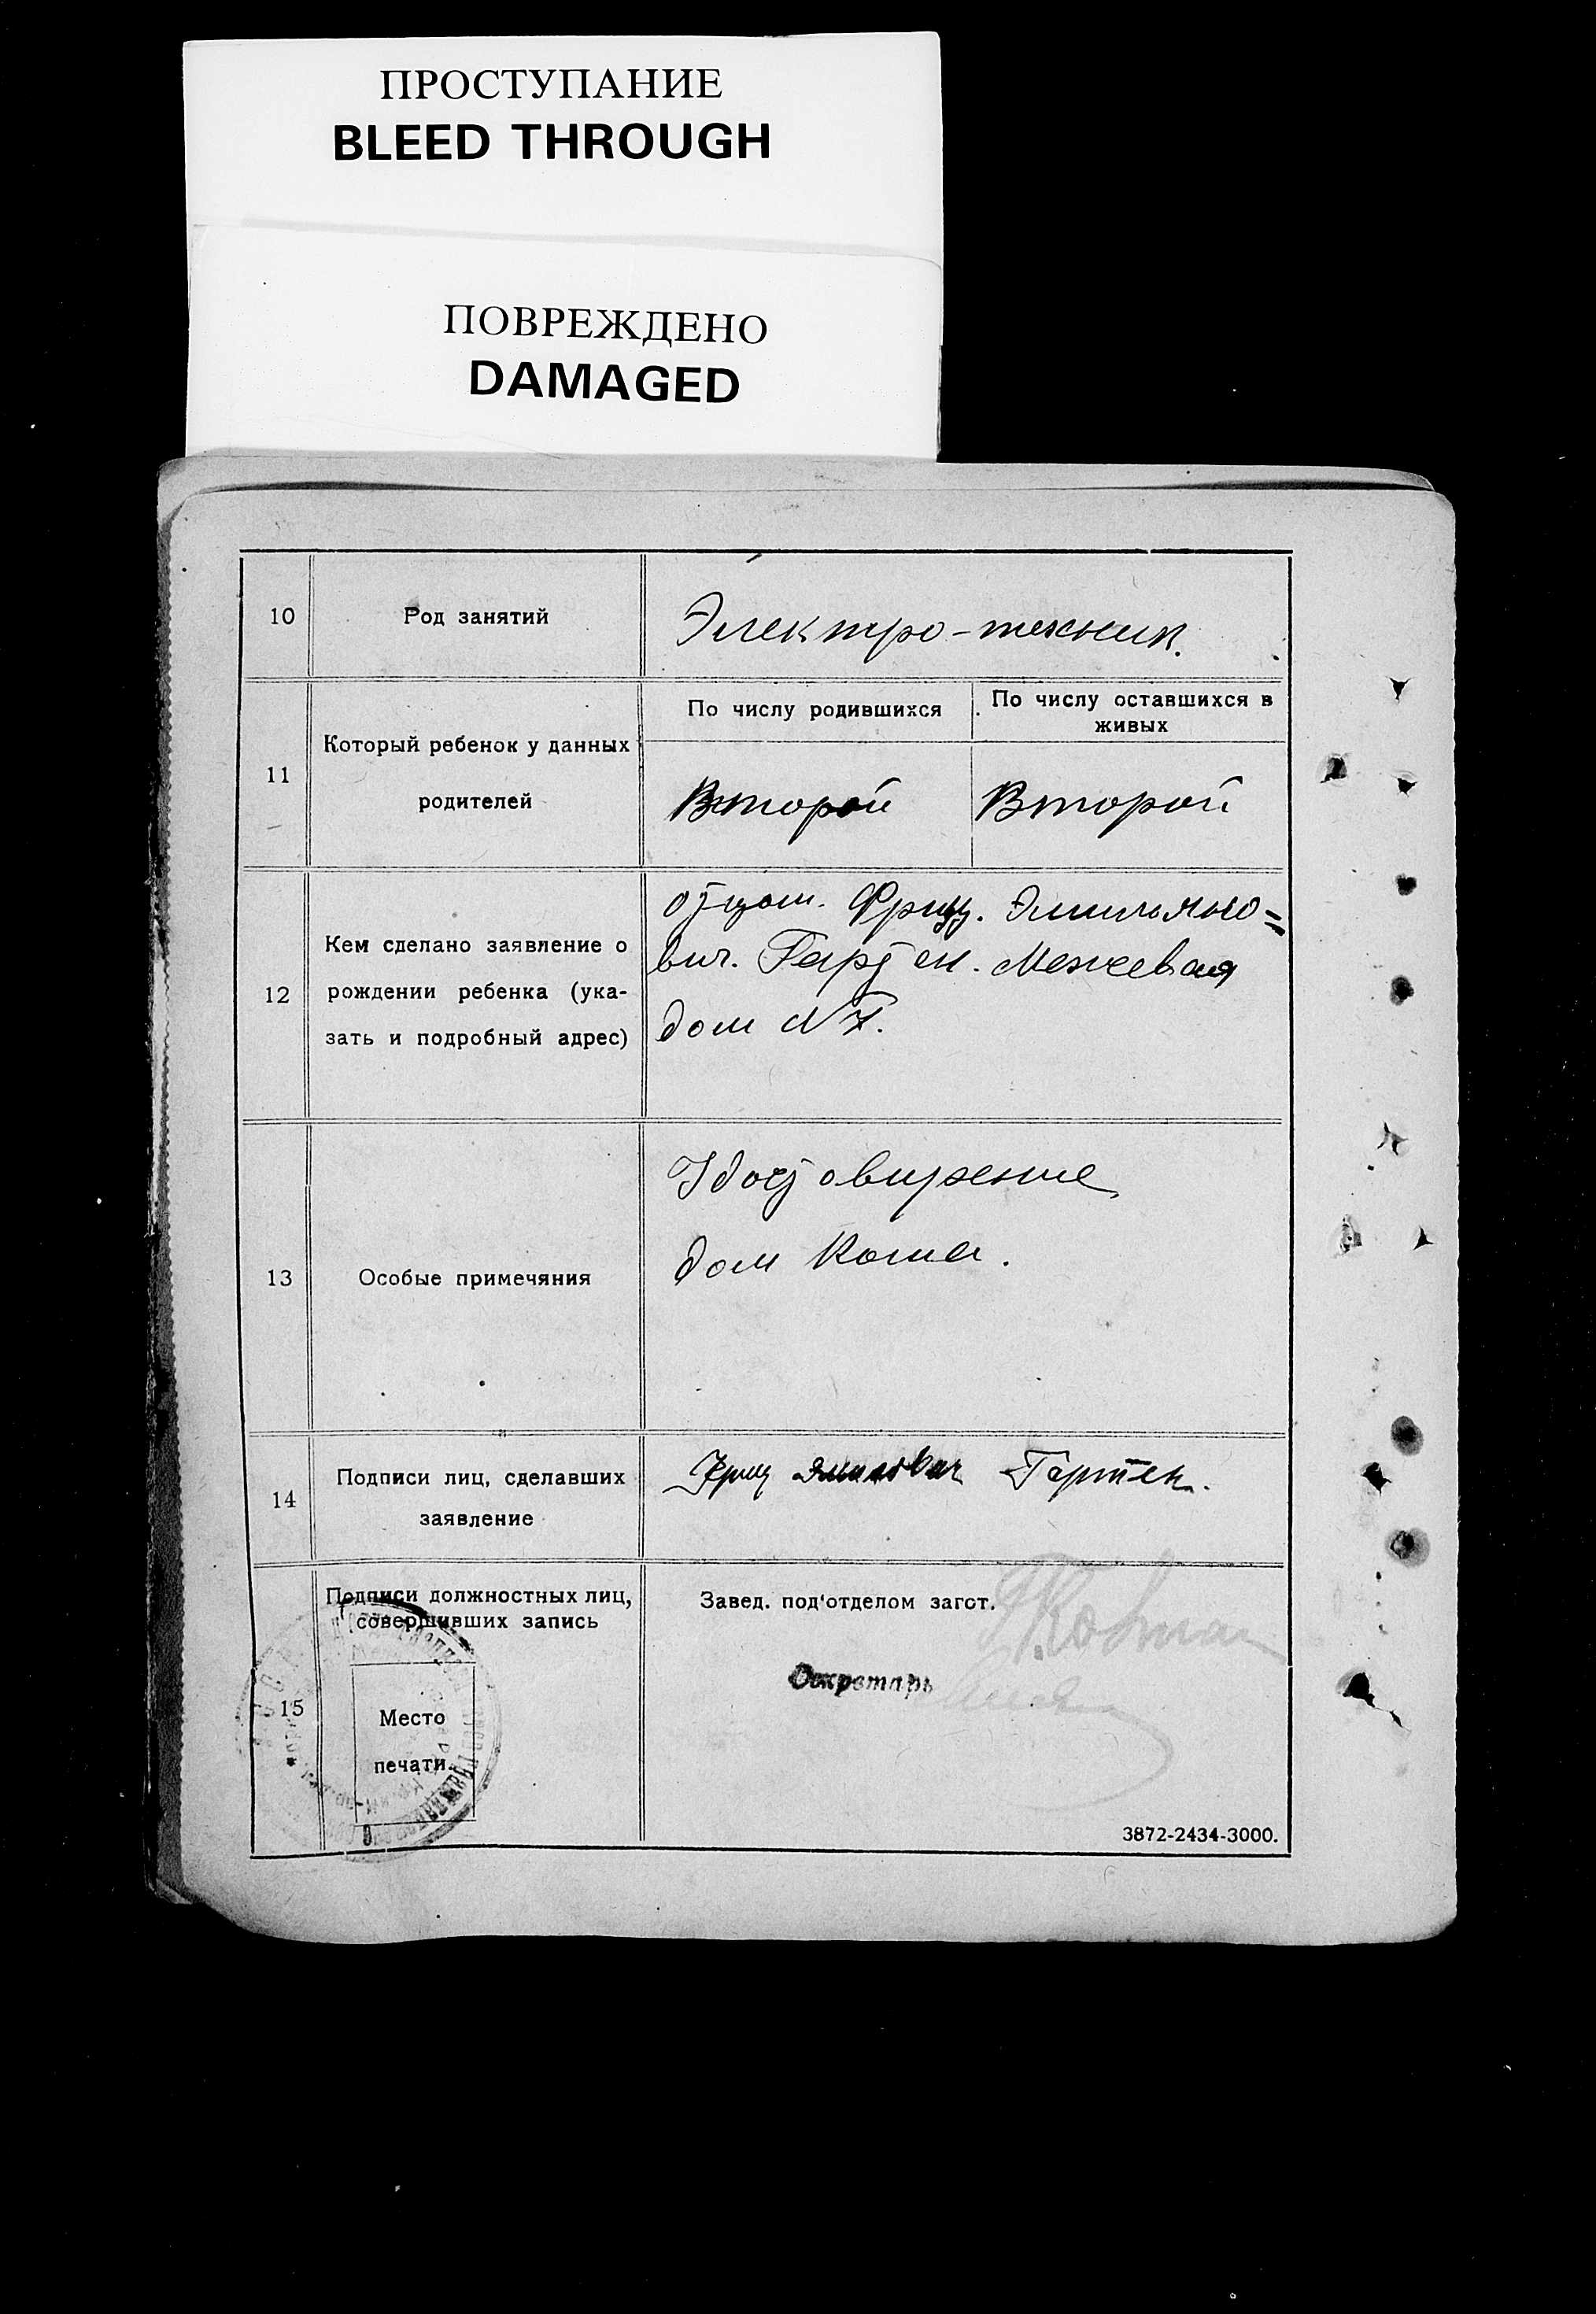 ПРОСТУПАНИЕ
BLEED THROUGH
ПОВРЕЖДЕНО
DAMAGED
10
Род занятий
Электро-техник.
11
Который ребенок у данных
родителей
По числу родившихся
По числу оставшихся в
живых
Второй
Второй
12
Кем сделано заявление о
рождении ребенка (ука-
зать и подробный адрес)
отцом. Фриц. Эмильяно=
вич. Гартен. Межевая
дом №7.
13
Особые примечяния
Удостовирение
дом Кома.
14
Подписи лиц, сделавших
заявление
Фриц Эмилович Гартен.
15
Подписи должностных лиц,
совершивших запись
Место
печати.
Завед. под'отделом загст.
Секретарь
3872-2434-3000.